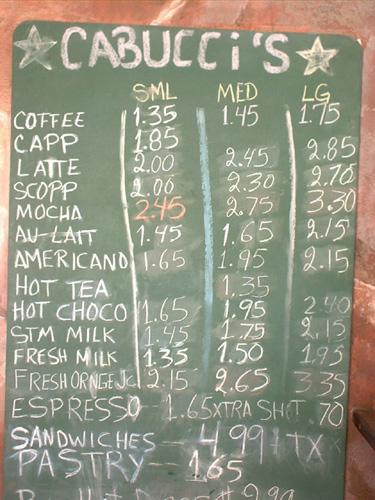 CABUCCi'S
SML MED LG
COFFEE 1.35 1.45 1.75
CAPP 1.85
LATTE 2.00 2.45 2.85
SCOPP 2.00 2.30 2.70
MOCHA 2.45 2.75 3.30
AU-LAIT 1.45 1.65 2.15
AMERICANO 1.65 1.95 2.15
HOT TEA 1.35
HOT CHOCO 1.65 1.95 2.40
STM MILK 1.45 1.75 2.15
FRESH MILK 1.35 1.50 1.95
FRESH ORNGE JC 2.15 2.65 3.35
ESPRESSO - 1.65 XTRA SHOT .70
SANDWICHES - 4.99 + TX
PASTRY - 1.65